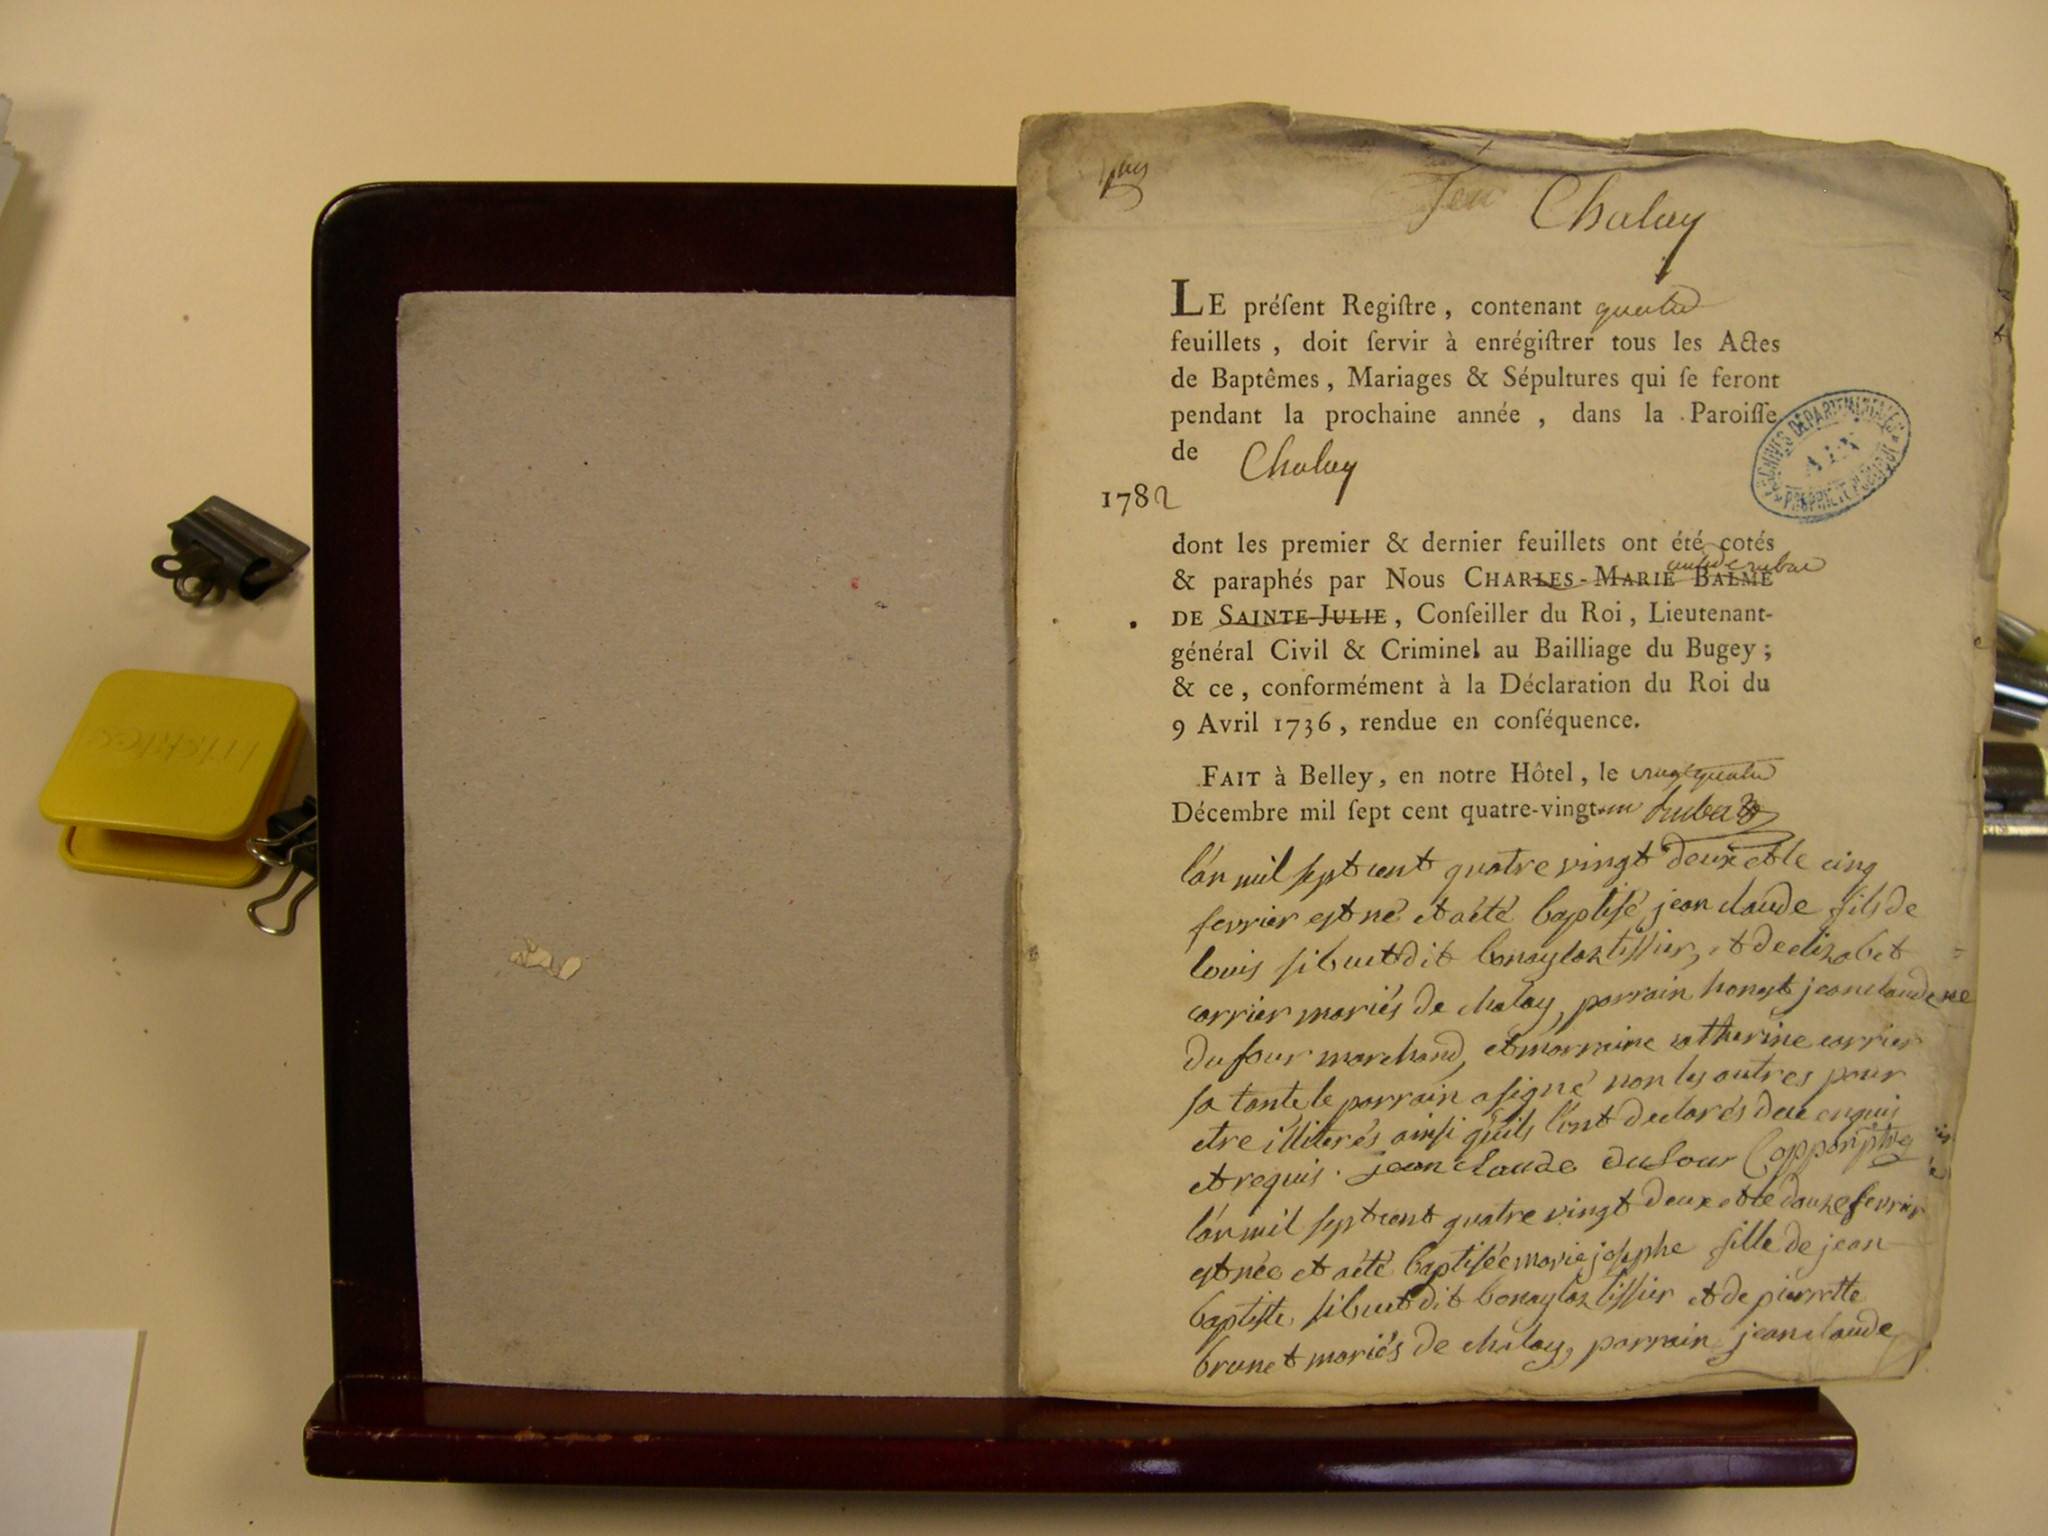 Chalay
LE préſent Regiſtre, contenant quatre
feuillets, doit ſervir à enrégiſtrer tous les Actes
de Baptêmes, Mariages & Sépultures qui ſe feront
pendant la prochaine année, dans la Paroiſſe
de Chalay
1782
ARCHIVES DÉPARTEMENTALES
AIN
PROPRIÉTÉ PUBLIQUE
dont les premier & dernier feuillets ont été cotés
& paraphés par Nous CHARLES-MARIE BALME
DE SAINTE-JULIE, Conſeiller du Roi, Lieutenant-
général Civil & Criminel au Bailliage du Bugey;
& ce, conformément à la Déclaration du Roi du
9 Avril 1736, rendue en conſéquence.
FAIT à Belley, en notre Hôtel, le vingt quatre
Décembre mil ſept cent quatre-vingt-un
l'án mil sept cent quatre vingt deux et le cinq
fevrier est né et aété baptisé jean claude fils de
louis sibuet dit bonaglaz tissier, et de elizabet
carrier mariés de chalay, parrain honest jean claude
dufour marchand, et marraine catherine carrier
sa tante le parrain a signé non les autres pour
etre illiterés ainsi qúils l'ont declarés de ce enquis
et requis. jean claude dufour
l'án mil sept cent quatre vingt deux et le douze fevrier
est née et aété baptisée marie josephe fille de jean
baptiste sibuet dit bonaglaz tissier et de pierrette
brunet mariés de chalay, parrain jean claude